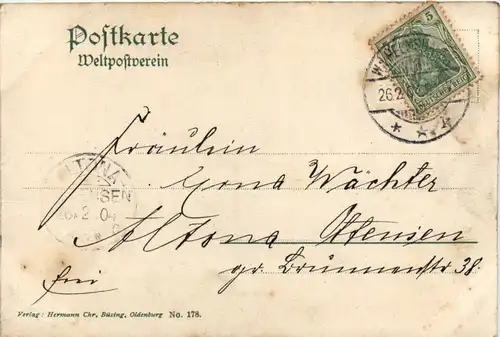 Postkarte
Weltpostverein
5
26.2.
Fräulein
Erna Wächter
ALTONA
SEN
2 04
Altona Ottensen
frei
gr. Brunnenstr 38.
Verlag: Hermann Chr. Büsing, Oldenburg No. 178.